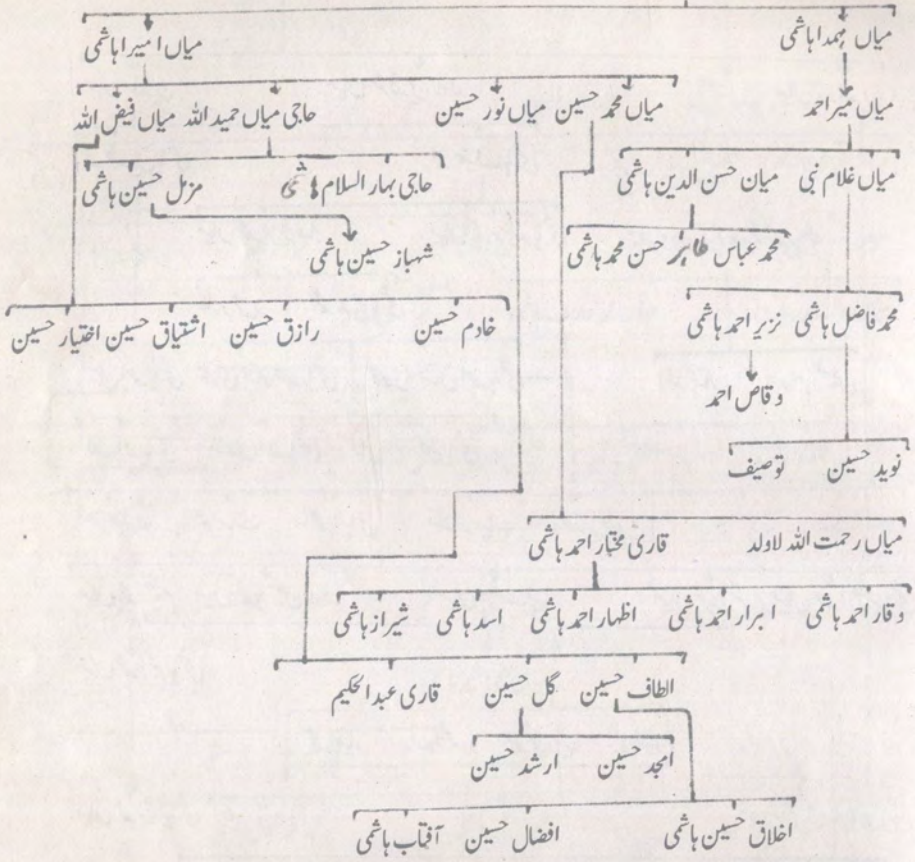 میاں ہمدا ہاشمی میاں امیرا ہاشمی
میاں میر احمد میاں محمد حسین میاں نور حسین حاجی میاں حمید اللہ میاں فیض اللہ
میاں غلام نبی میان حسن الدین ہاشمی حاجی بہار السلام ہاشمی مزمل حسین ہاشمی
محمد عباس طاہر حسن محمد ہاشمی شہباز حسین ہاشمی
محمد فاضل ہاشمی نزیر احمد ہاشمی خادم حسین رازق حسین اشتیاق حسین اختیار حسین
وقاص احمد
نوید حسین توصیف
میاں رحمت اللہ لاولد قاری مختار احمد ہاشمی
وقار احمد ہاشمی ابرار احمد ہاشمی اظہار احمد ہاشمی اسد ہاشمی شیراز ہاشمی
الطاف حسین گل حسین قاری عبدالحکیم
امجد حسین ارشد حسین
اخلاق حسین ہاشمی افضال حسین آفتاب ہاشمی